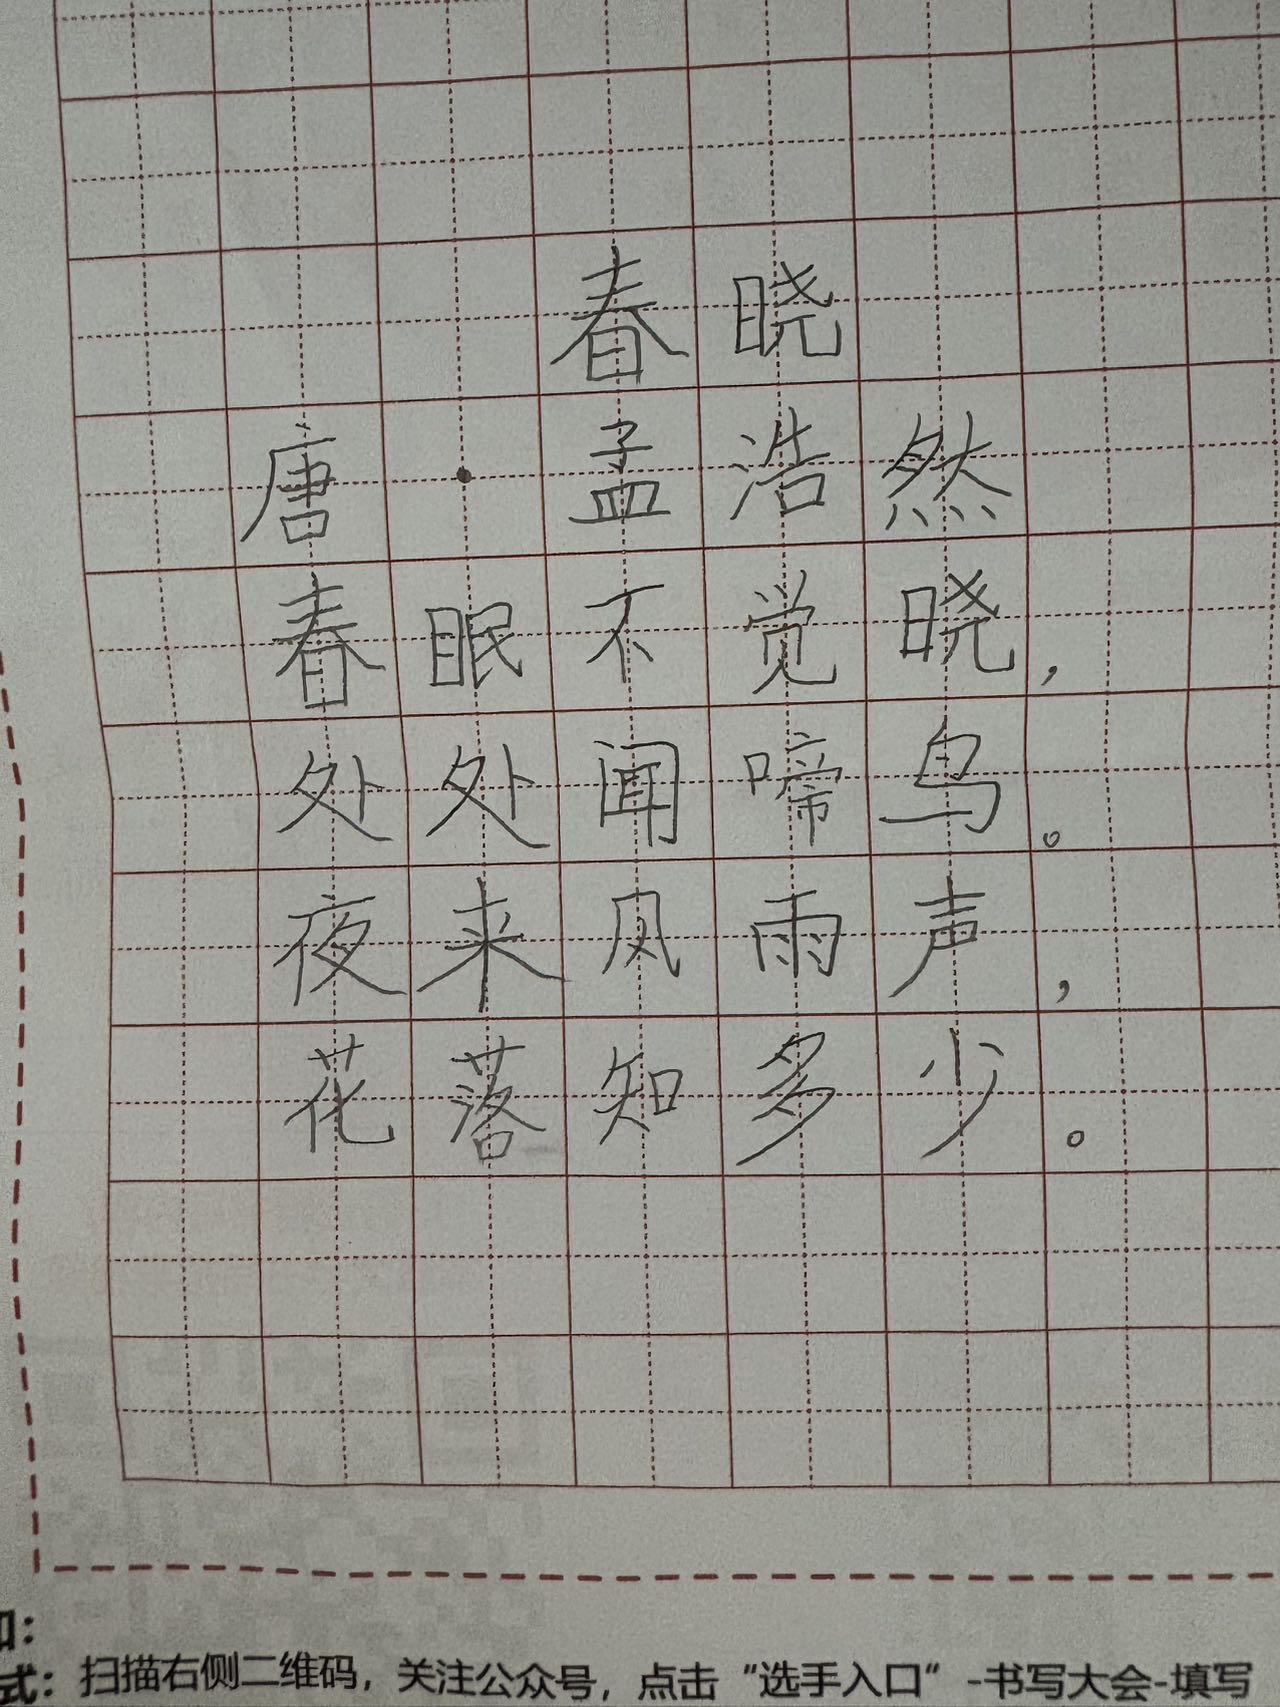 春晓
唐·孟浩然
春眠不觉晓，
处处闻啼鸟。
夜来风雨声，
花落知多少。
式：扫描右侧二维码，关注公众号，点击“选手入口”-书写大会-填写